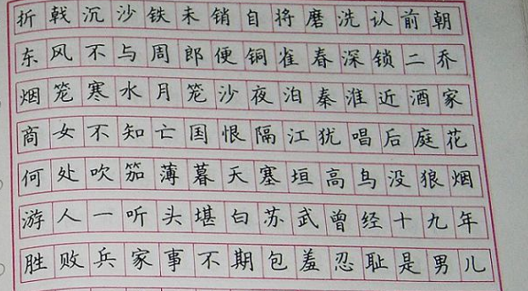 折戟沉沙铁未销自将磨洗认前朝
东风不与周郎便铜雀春深锁二乔
烟笼寒水月笼沙夜泊秦淮近酒家
商女不知亡国恨隔江犹唱后庭花
何处吹笳薄暮天塞垣高鸟没狼烟
游人一听头堪白苏武曾经十九年
胜败兵家事不期包羞忍耻是男儿